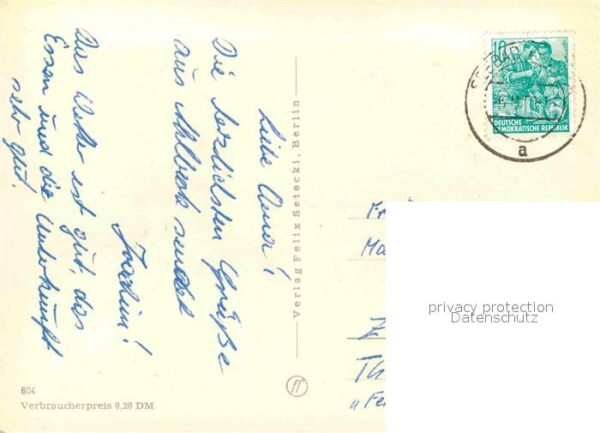 Liebe Oma!
Die herzlichsten Grüße
aus Ahlbeck sendet
Joachim!
Das Wetter ist gut, das
Essen und die Unterkunft
sehr gut.
Verlag Felix Setecki, Berlin
10
DEUTSCHE
DEMOKRATISCHE REPUBLIK
a
Fr
Ma
privacy protection
Datenschutz
Th
"Fe
804
Verbraucherpreis 0,20 DM